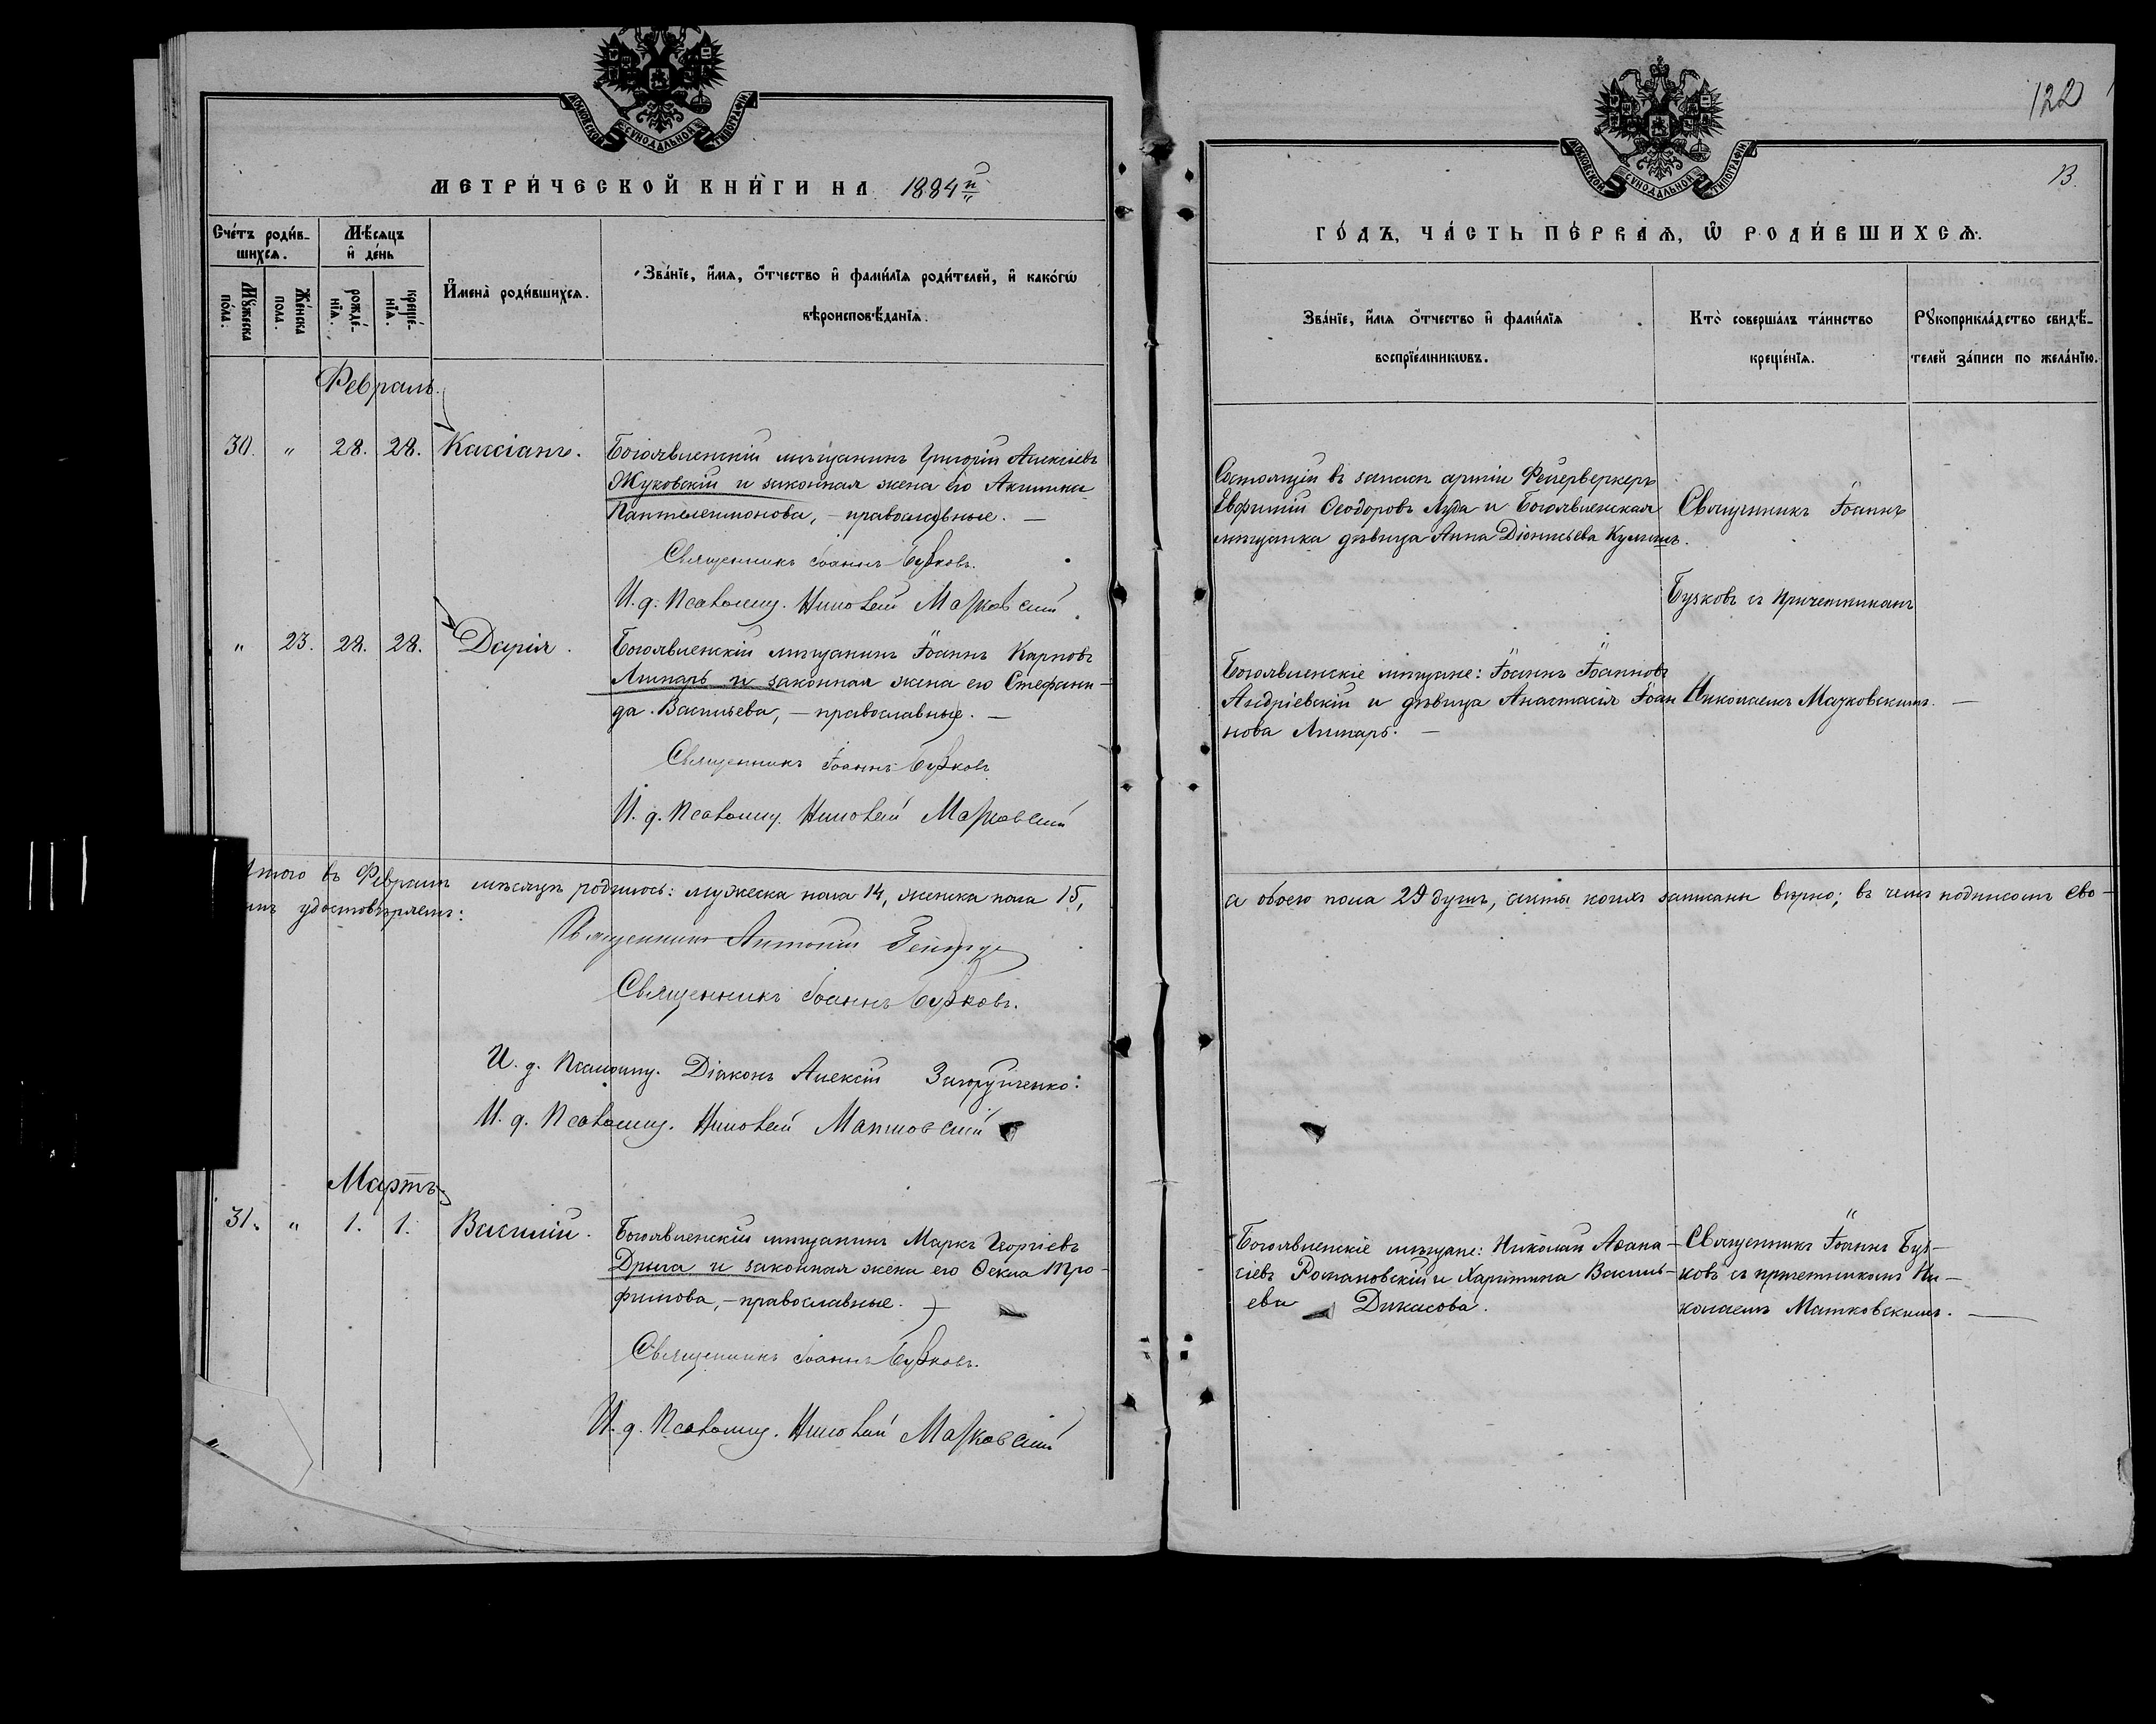 МОСКОВСКОЙ СУНОДАЛЬНОЙ ТИПОГРАФІИ
МЕТРИ́ЧЕСКОЙ КНИ́ГИ НА 1884й
Сче́тъ роди́в-
шихсѧ.
Мѣ́сѧцъ
и҆ де́нь
Мꙋ́жеска
по́ла.
Же́нска
пола.
рожде́-
нїѧ.
креще́-
нїѧ.
И҆мена̀ роди́вшихсѧ.
Зва́нїе, и҆́мѧ, ѻ҆́тчество и҆ фами́лїѧ роди́телей, и҆ како́гѡ
вѣроисповѣ́данїѧ.
Февраль.
30. " 28. 28. Кассіанъ.
Богоявленскій мѣщанинъ Григорій Алексіевъ
Жуковскій и законная жена его Акилина
Пантелеимонова, – православные. –
Священникъ Іоаннъ Бузковъ.
И. д. Псаломщ. Николай Матковскій
" 23. 28. 28. Дарія.
Богоявленскій мѣщанинъ Іоаннъ Карповъ
Линарь и законная жена его Стефани-
да Васильева, – православные. –
Священникъ Іоаннъ Бузковъ
И. д. Псаломщ. Николай Матковскій
Итого въ Февралѣ мѣсяцѣ родилось: мужеска пола 14, женска пола 15,
удостовѣряемъ:
Священникъ Антоній
Священникъ Іоаннъ Бузковъ.
И. д. Псаломщ. Діаконъ Алексій
И. д. Псаломщ. Николай Матковскій
Мартъ.
31. " 1. 1. Василій.
Богоявленскій мѣщанинъ Маркъ Георгіевъ
Дрыга и законная жена его Ѳекла Тро-
фимова, – православные.
Священникъ Іоаннъ Бузковъ.
И. д. Псаломщ. Николай Матковскій
122
МОСКОВСКОЙ СУНОДАЛЬНОЙ ТИПОГРАФІИ
13.
ГО́ДЪ, ЧА́СТЬ ПЕ́РВАѦ, Ѿ РОДИ́ВШИХСѦ.
Зва́нїе, и҆́мѧ ѻ҆́тчество и҆ фами́лїѧ
воспрїе́мникѡвъ.
Кто̀ соверша́лъ та́инство
креще́нїѧ.
Рꙋкоприкла́дство свидѣ́-
телей за́писи по жела́нїю.
Состоящій въ запасѣ арміи Фейерверкеръ
Евфимій Ѳеодоровъ Луда и Богоявленская
мѣщанка дѣвица Анна Діонисьева Кулишъ.
Священникъ Іоаннъ
Бузковъ съ причетникомъ
Богоявленскіе мѣщане: Іоаннъ Іоанновъ
Андріевскій и дѣвица Анастасія Іоан
нова Линарь. –
Николаемъ Матковскимъ. –
а обоего пола 29 душъ, акты коихъ записаны вѣрно; въ чемъ подписомъ сво-
Богоявленскіе мѣщане: Николай Аѳана-
сіевъ Романовскій и Харитина Василь-
ева Дикасова.
Священникъ Іоаннъ Буз-
ковъ съ причетникомъ Ни-
колаемъ Матковскимъ. –